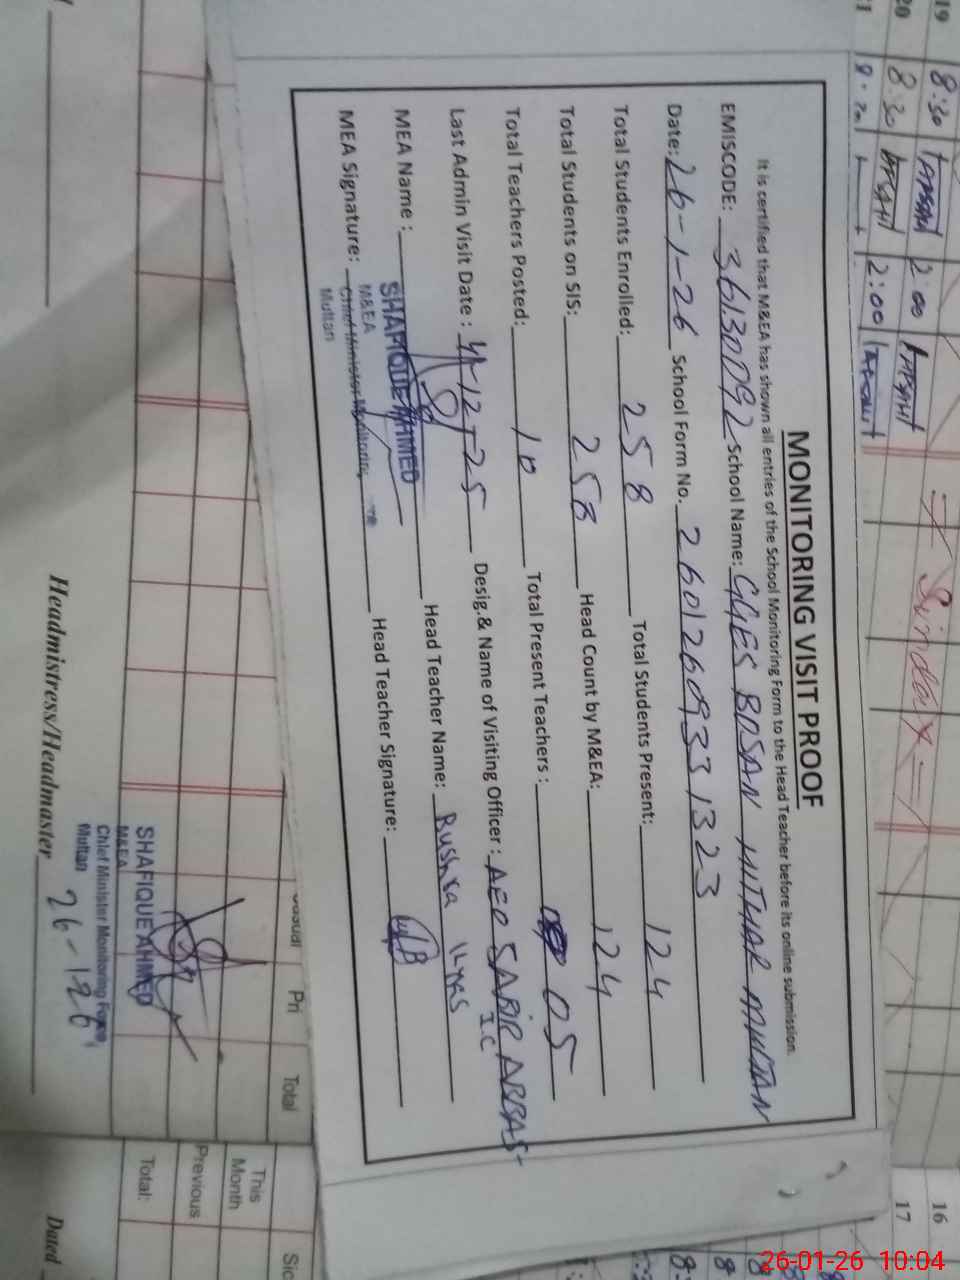 MONITORING VISIT PROOF
It is certified that M&EA has shown all entries of the School Monitoring Form to the Head Teacher before its online submission.
EMISCODE: 36130092 School Name: GGES BOSAN MITHAR MULTAN
Date: 26-1-26 School Form No. 2601260933 1323
Total Students Enrolled: 258 Total Students Present: 124
Total Students on SIS: 258 Head Count by M&EA: 124
Total Teachers Posted: 10 Total Present Teachers: 05
Last Admin Visit Date: 12-25 Desig.& Name of Visiting Officer: AEO SABIR ABBAS
MEA Name: SHAFIQUE AHMED Head Teacher Name: Bushra Ilyas
I.C
MEA Signature: Head Teacher Signature:
M&EA
Chief Minister Monitoring
Multan
19 8:30 2:00
20 8:30 2:00
Sunday
16
17
Casual
Pri
Total
SHAFIQUE AHMED
M&EA
Chief Minister Monitoring Force
Multan
Headmistress/Headmaster 26-1-26
This Month
Previous
Total:
Sic
Dated
26-01-26 10:04